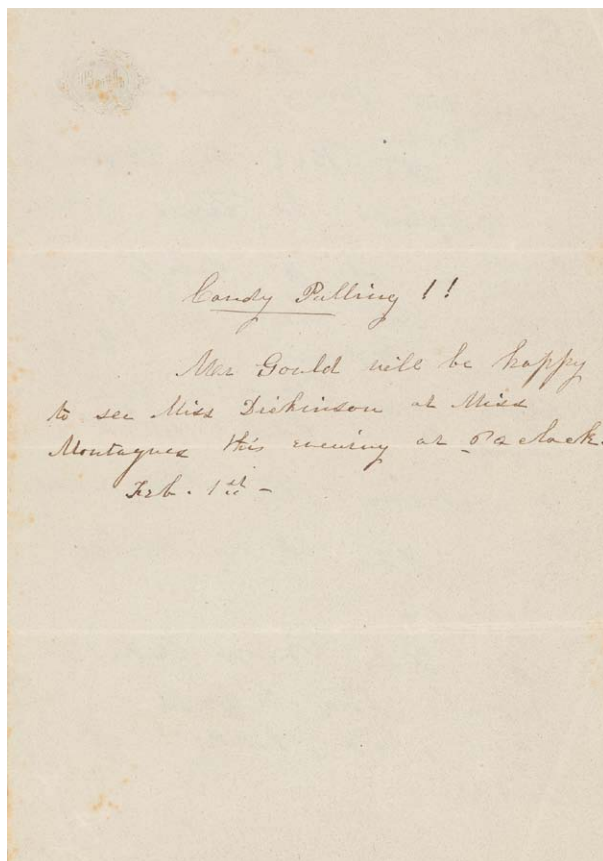 Candy Pulling !!
Mr Gould will be happy
to see Miss Dickinson at Miss
Montagues this evening at o clock.
Feb. 1st -